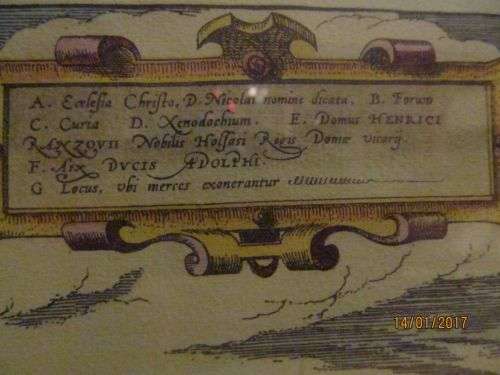 A. Ecclesia Christo, D. Nicolai nomine dicata, B. Forum
C. Curia D. Xenodochium. E. Domus HENRICI
RANZOVII Nobilis Holsati Regis Daniæ vicarÿ.
F. Arx DVCIS ADOLPHI.
G Locus, vbi merces exonerantur
14/01/2017